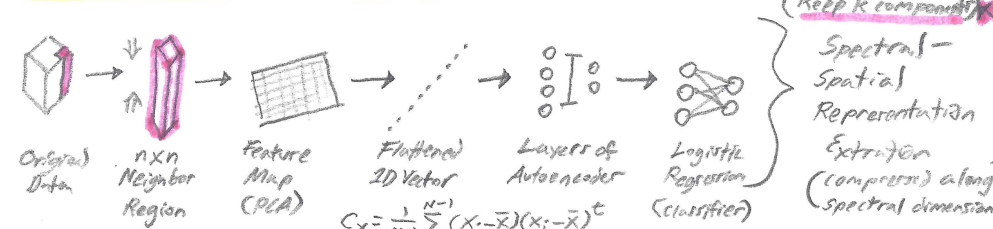 (Keep k components)
Original
Data
nxn
Neighbor
Region
Feature
Map
(PCA)
Flattened
1D Vector
Layers of
Autoencoder
Logistic
Regression
(classifier)
Spectral-
Spatial
Representation
Extraction
(compressed along
spectral dimension
N-1
Σ (xᵢ-x̄)(xᵢ-x̄)ᵗ